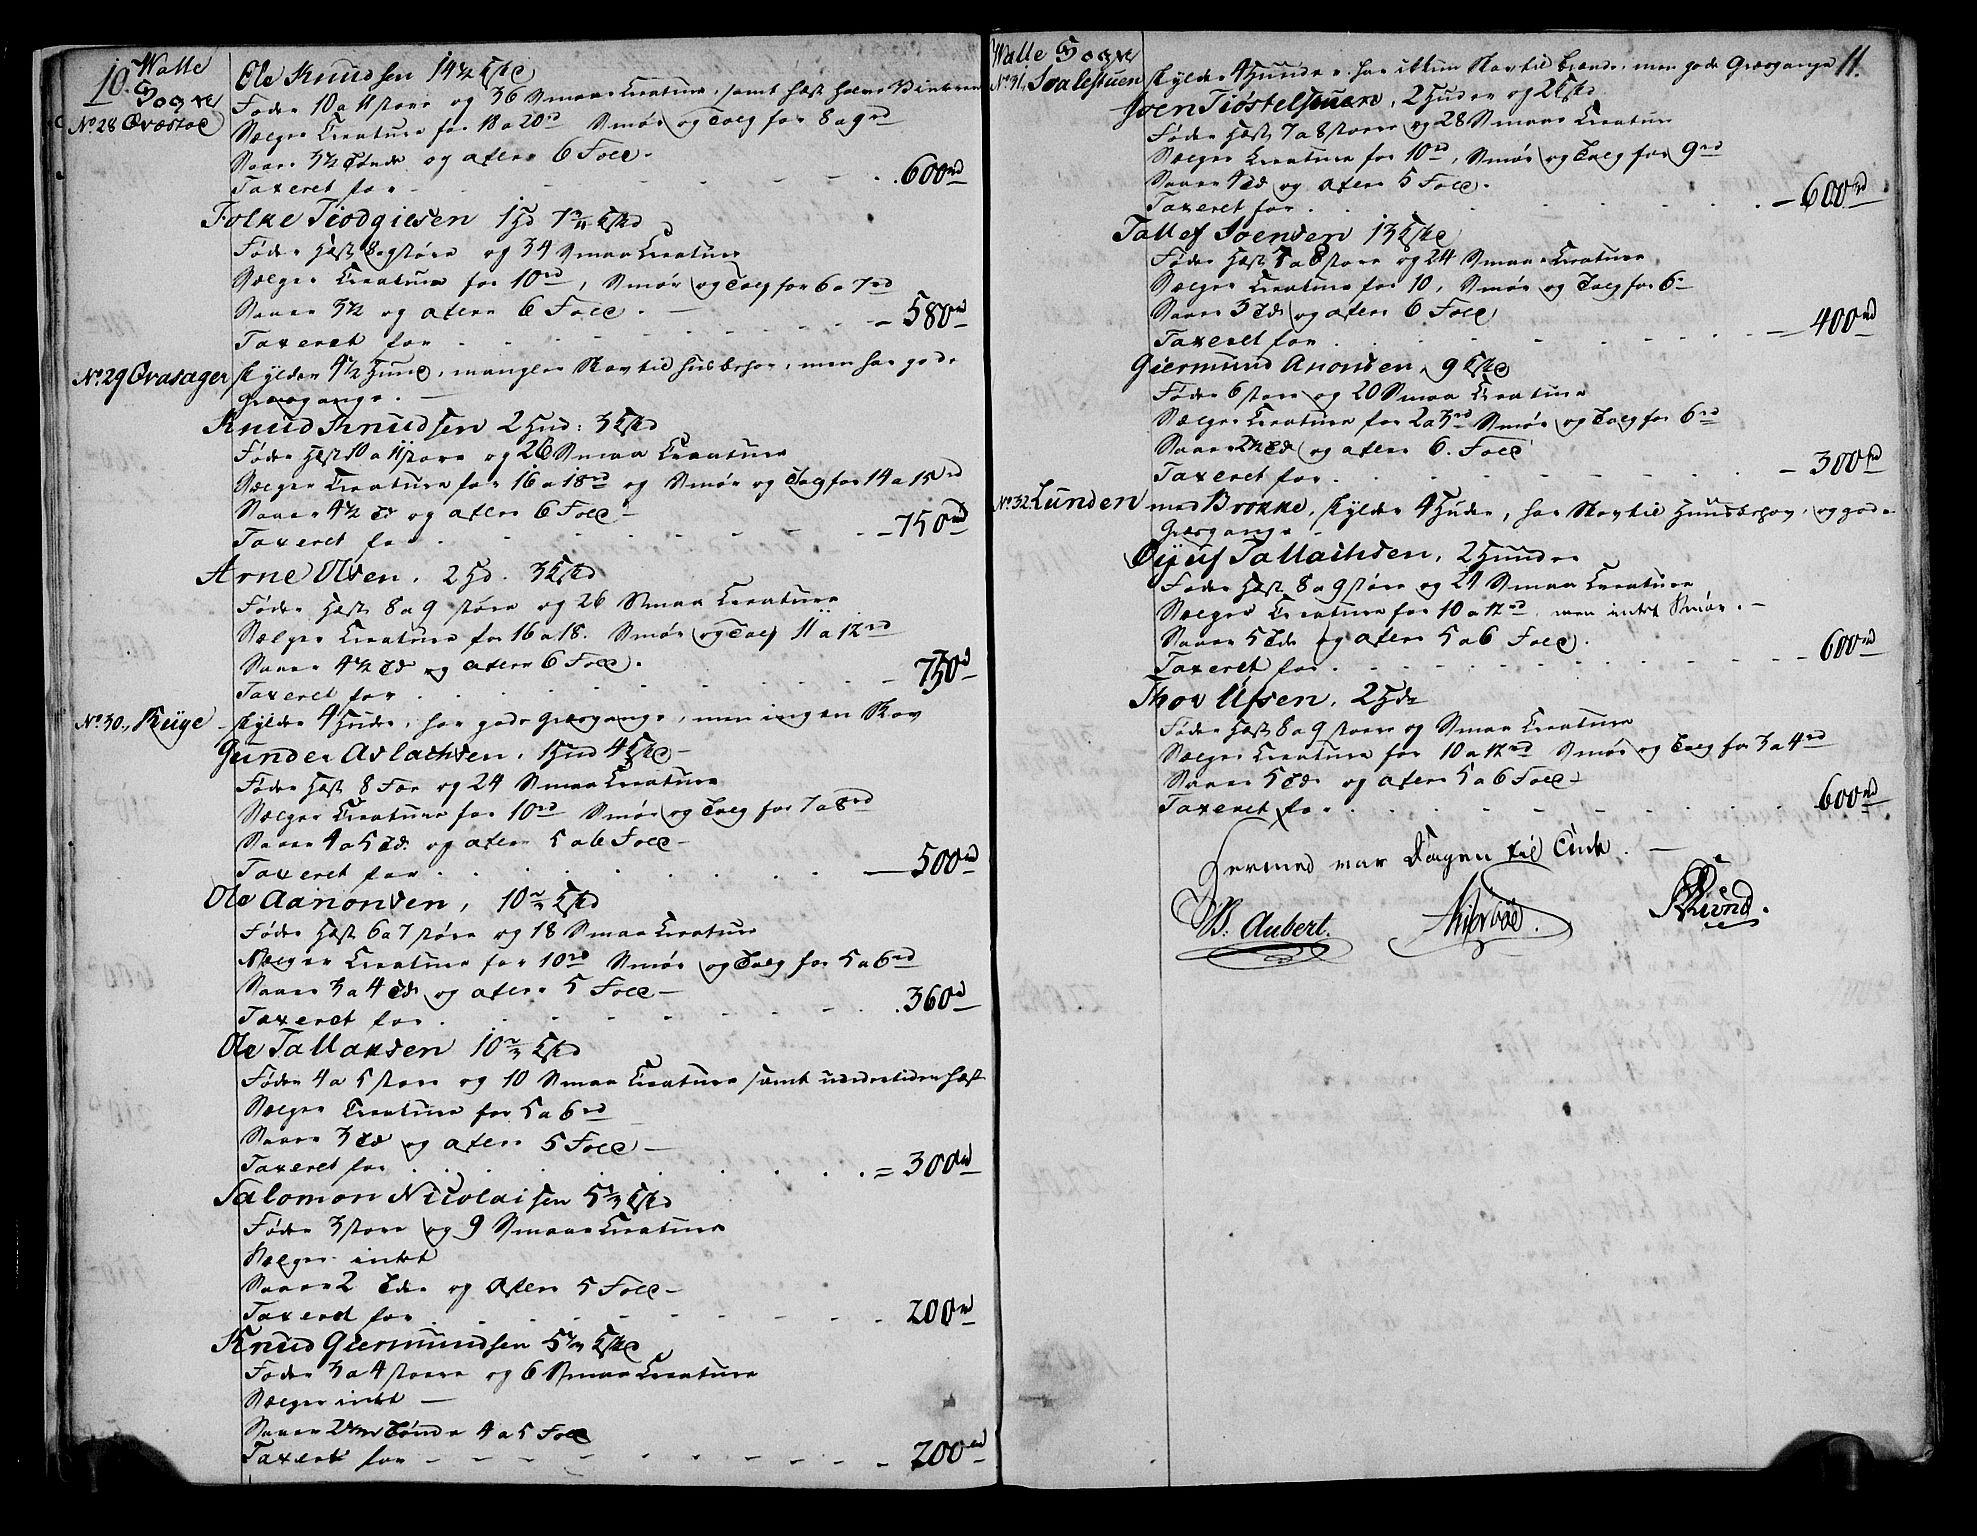 10. Walle Sogn
No 28 Qvæstoe
Ole Knudsen 14½ Kskd
Føder 10 a 11 store og 36 Smaae Creature, samt Hæst halve Vinteren
Sælger Creature for 18 a 20rd Smør og Talg for 8 a 9rd
Saaer 3½ Tønde og avler 6 Fold.
Taxeret for - - - 600rd
Folke Tiodgiesen 1 Hd 7 3/11 Kskd
Føder Hæst 8 a 9 støre og 34 Smaa Creature
Sælger Creature for 10rd, Smør og Talg for 6 a 7rd
Saaer 3½ og avler 6 Fold. -
Taxeret for - - - 580rd
No 29 Qvasager skylder 4½ Hud, mangler Skov til Huusbehov, men har gode
Græsgange. -
Knud Knudsen 2 Hud: 3 Kskd
Føder Hæst 10 a 11 store og 26 Smaa Creature
Sælger Creature for 16 a 18rd og Smør og Talg for 14 a 15rd
Saaer 4½ Td og avler 6 Fold -
Taxeret for - - - 750rd
Arne Olsen. 2 Hd. 3 Kskd
Føder Hæst 8 a 9 støre og 26 Smaa Creature
Sælger Creature for 16 a 18. Smør og Talg 11 a 12rd
Saaer 4½ Td og avler 6 Fold.
Taxeret for . . . 750rd
No 30, Reiige - skylder 4 Huder, har gode Græsgange, men ingen Skov
Gunder Aslachsen, 1 Hud 4 Kskd -
Føder Hæst 8 Fær og 24 Smaa Creature
Sælger Creature for 10rd Smør og Talg for 7 a 8rd
Saaer 4 a 5 Td. og avler 5 a 6 Fold -
Taxeret for . . . 500rd
Ole Aanonsen, 10⅔ Kskd
Føder Hæst 6 a 7 støre og 18 Smaa Creature
Sælger Creature for 10rd Smør og Talg for 5 a 6rd
Saaer 3 a 4 Td og avler 5 Fold -
Taxeret for . . . 360rd
Ole Tallaksen 10⅔ Kskd
Føder 4 a 5 store og 10 Smaa Creature samt undertiden Hæst
Sælger Creature for 5 a 6rd
Saaer 3 Td og avler 5 Fold -
Taxeret for . . . 300rd
Salomon Nicolaisen 5⅓ Kskd
Føder 3 store og 9 Smaae Creature
Sælger intet
Saaer 2 Tdr og avler 5 Fold -
Taxeret for . . . 200rd
Knud Giermundsen 5⅓ Kskd
Føder 3 a 4 store og 6 Smaa Creature
Sælger intet -
Saaer 2 Tønder 4 a 5 Fold
Taxeret for - - - 200rd
Walle Sogn 11.
No 31, Svalestuen skylder 4 Huder. har ikkun Skov til Brænde, men gode Græsgange
Joen Tiøstelsen, 2 Huder og 2 Kskd
Føder Hæst 7 a 8 store og 28 Smaae Creature
Sælger Creature for 10rd, Smør og Talg for 9rd
Saaer 4 Td og avler 5 Fold.
Taxeret for . . . 600rd
Tallef Joensen 13 Kskd
Føder Hæst 7 a 8 store og 24 Smaae Creature
Sælger Creature for 10, Smør og Talg for 6 -
Saaer 3 Td og avler 6 Fold
Taxeret for . . . 400rd
Giermund Anonsen, 9 Kskd
Føder 6 store og 20 Smaa Creature
Sælger Creature for 2 a 3rd Smør og Talg for 6rd
Saaer 2½ Td og avler 6. Fold
Taxeret for . . . 300rd
No 32 Lunden med Brokke, skylder 4 Huder, har Skov til Huusbehov, og gode
Græsgange -
Oyuf Tallachsen, 2 Huuder
Føder Hæst 8 a 9 støre og 24 Smaa Creature
Sælger Creature for 10 a 12rd, men intet Smør. -
Saaer 5 Td og avler 5 a 6 Fold.
Taxeret for . . . 600rd
Thor Ufsen, 2 Hdr
Føder Hæst 8 a 9 store og Smaa Creature
Sælger Creature for 10 a 12rd Smør og Talg for 3 a 4rd
Saaer 5 Td og avler 5 a 6 Fold -
Taxeret for . . . 600rd
Hermed var Dagen til Ende. -
B. Aubert.